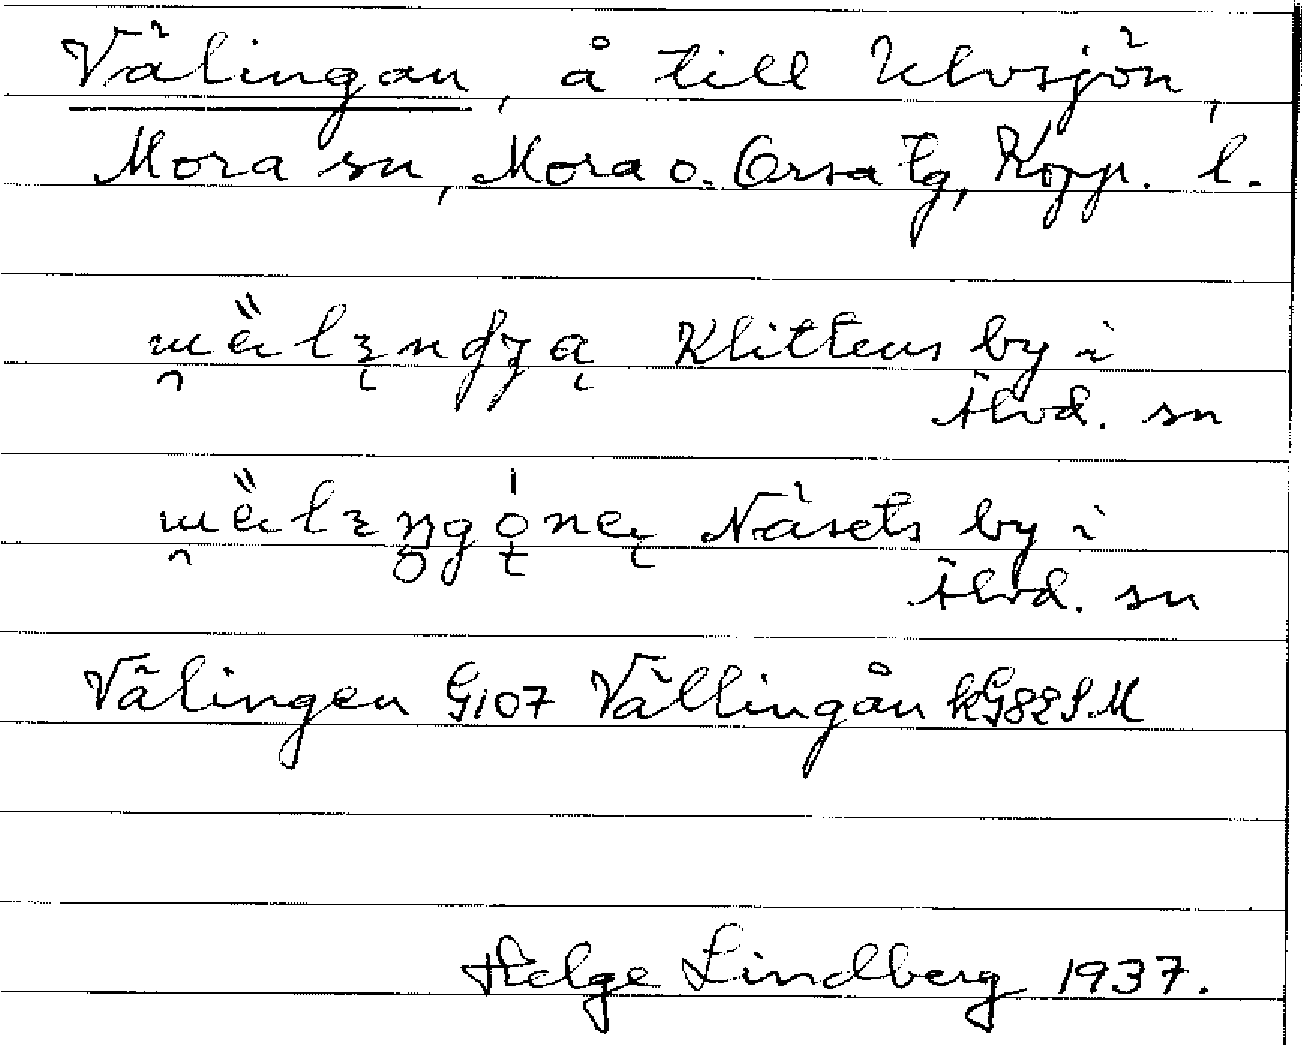 Välingan, å till Ulvsjön,
Mora sn, Mora o. Orsa tg, Kopp. l.
Klittens by i
Älvd. sn
Näsets by i
Älvd. sn
Välingen G107 Vällingån kG82S.M
Helge Lindberg 1937.